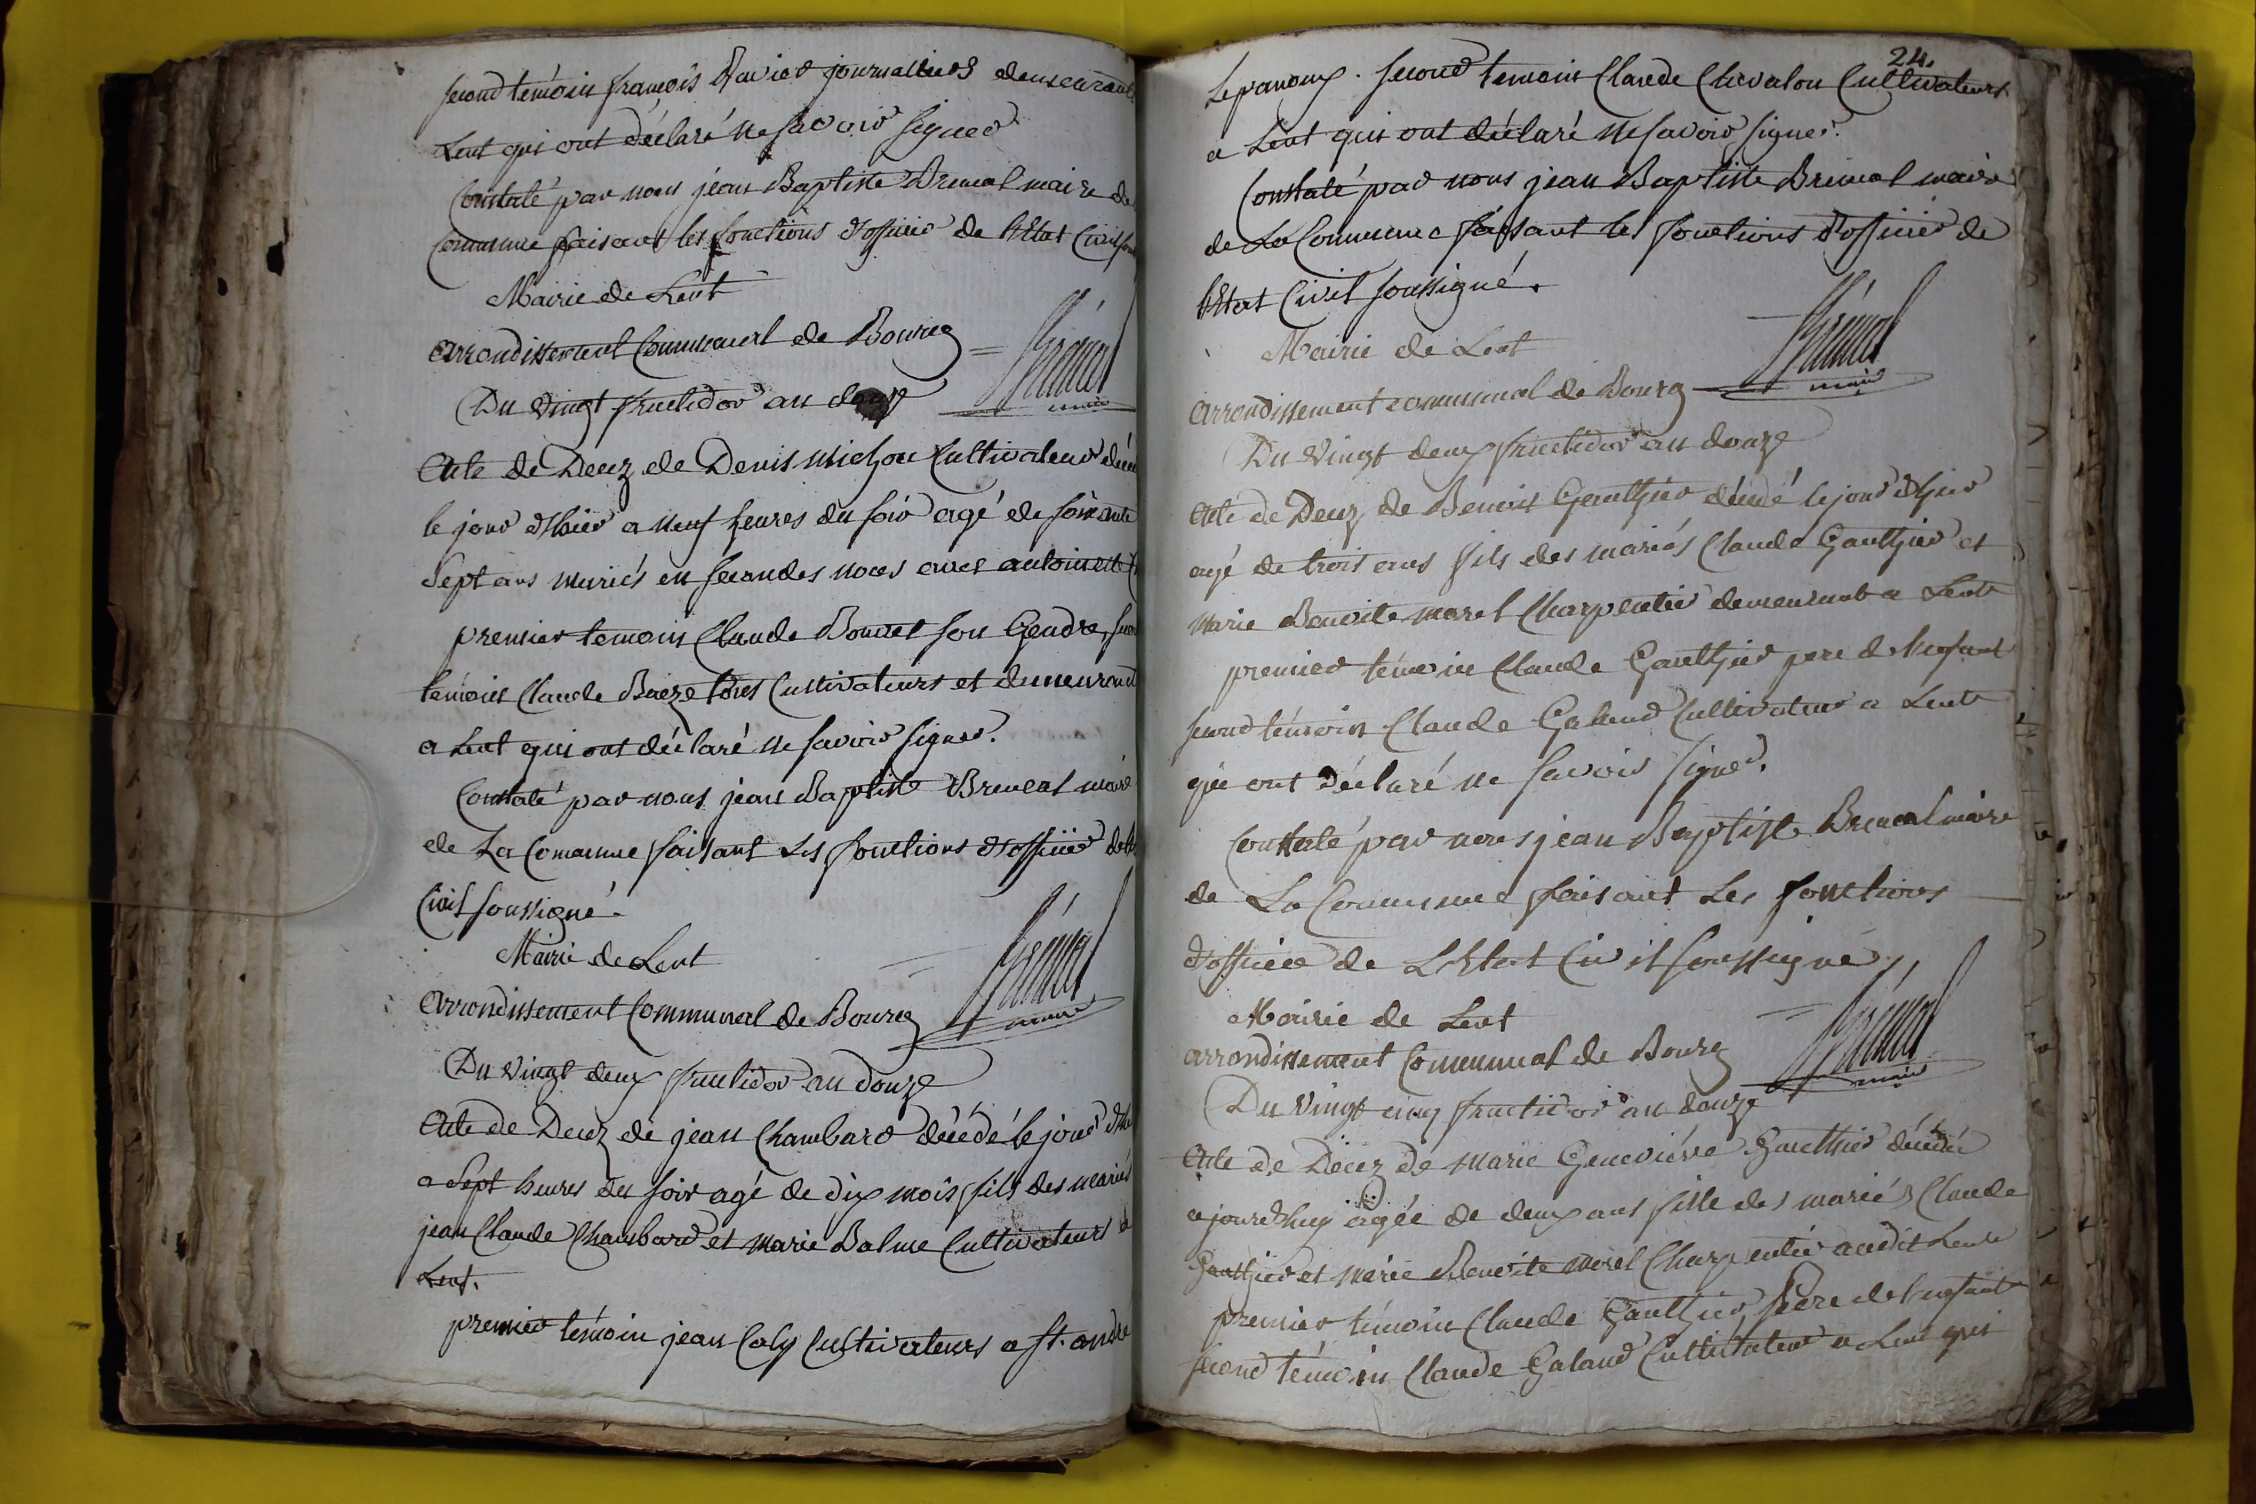 second temoin françois Ravier journaliers demeurant
Lent qui ont déclaré ne savoir signer
Constaté par nous jean Baptiste Brenal maire de
Commune faisant les fonctions d'officier de l'Etat Civil
Mairie de Lent
arrondissement Communal de Bourg
Brénal
maire
Du vingt fructidor an douze
Acte de Decez de Denis Michon Cultivateur
le jour d'hier a neuf heures du soir agé de soixante
Sept ans mariés en secondes noces avec antoinette
premier temoin Claude Bouvet son Gendre,
temoin Claude Baeze tous Cultivateurs et demeurant
a Lent qui ont déclaré ne savoir signer.
Constaté par nous jean Baptiste Brenal maire
de La Commune faisant Les fonctions d'officier
Civil soussigné.
Mairie de Lent
Brénal
maire
arrondissement Communal de Bourg
Du vingt deux fructidor an douze
Acte de Decez de jean Chambard décédé le jour
a Sept heures du soir agé de dix mois fils des mariés
jean Claude Chambard et marie Balme Cultivateurs a
Lent.
premier témoin jean Coly Cultivateurs a st. andré
24.
Lepanoux. second temoin Claude Chevalon Cultivateurs
a Lent qui ont déclaré ne savoir signer.
Constaté par nous jean Baptiste Brenal maire
de La Commune faisant les fonctions d'officier de
l'Etat Civil soussigné.
Brénal
maire
Mairie de Lent
arrondissement communal de Bourg
Du vingt deux fructidor an douze
Acte de Decez de Benoit Gauthier décédé le jour d'hier
agé de trois ans fils des mariés Claude Gauthier et
marie Benoite morel Charpentier demeurant a Lent
premier témoin Claude Gauthier pere de l'enfant
second témoin Claude Galand Cultivateur a Lent
qui ont déclaré ne savoir signer.
Constaté par nous jean Baptiste Brenal maire
de La Commune faisant Les fonctions
d'officier de L'Etat Civil soussigné,
Mairie de Lent
Brénal
maire
arrondissement Communal de Bourg
Du vingt cinq fructidor an douze
Acte de Décez de marie Geneviéve Gauthier décédée
ajourd'huy agée de deux ans fille des mariés Claude
Gauthier et marie Benoite morel Charpentier audit Lent
premier témoin Claude Gauthier Pere de l'enfant
second témoin Claude Galand Cultivateur a Lent qui